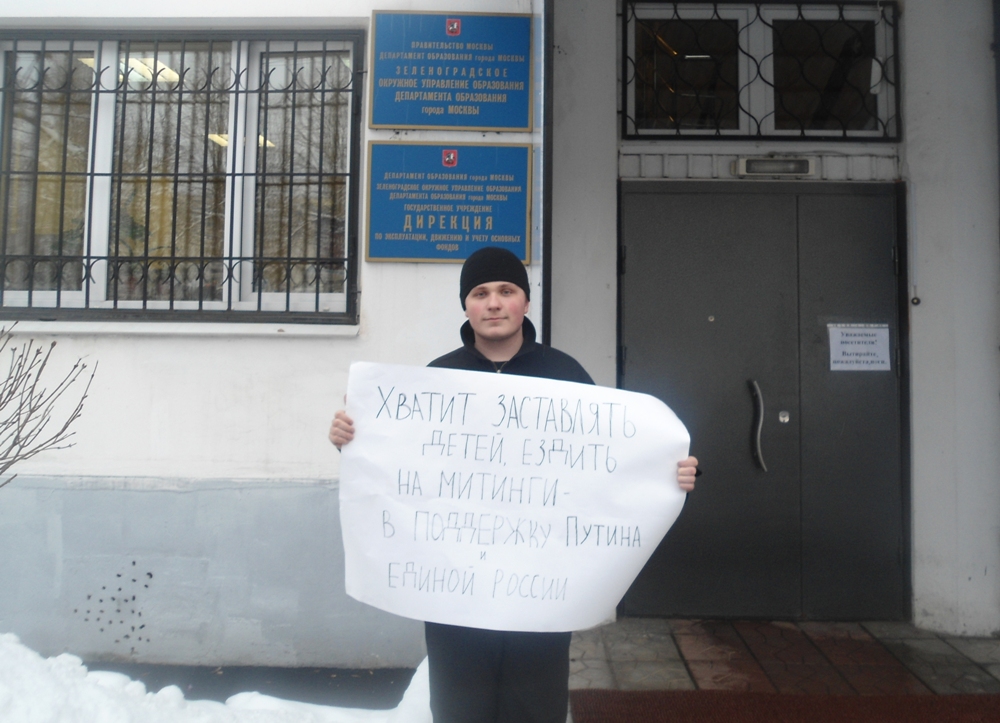 ПРАВИТЕЛЬСТВО МОСКВЫ
ДЕПАРТАМЕНТ ОБРАЗОВАНИЯ города МОСКВЫ
ЗЕЛЕНОГРАДСКОЕ
ОКРУЖНОЕ УПРАВЛЕНИЕ ОБРАЗОВАНИЯ
ДЕПАРТАМЕНТА ОБРАЗОВАНИЯ
города МОСКВЫ
ДЕПАРТАМЕНТ ОБРАЗОВАНИЯ города МОСКВЫ
ЗЕЛЕНОГРАДСКОЕ ОКРУЖНОЕ УПРАВЛЕНИЕ ОБРАЗОВАНИЯ
ДЕПАРТАМЕНТА ОБРАЗОВАНИЯ города МОСКВЫ
ГОСУДАРСТВЕННОЕ УЧРЕЖДЕНИЕ
ДИРЕКЦИЯ
ПО ЭКСПЛУАТАЦИИ, ДВИЖЕНИЮ И УЧЕТУ ОСНОВНЫХ
ФОНДОВ
Уважаемые
посетители!
Вытирайте,
пожалуйста, ноги.
ХВАТИТ ЗАСТАВЛЯТЬ
ДЕТЕЙ, ЕЗДИТЬ
НА МИТИНГИ-
В ПОДДЕРЖКУ ПУТИНА
И
ЕДИНОЙ РОССИИ